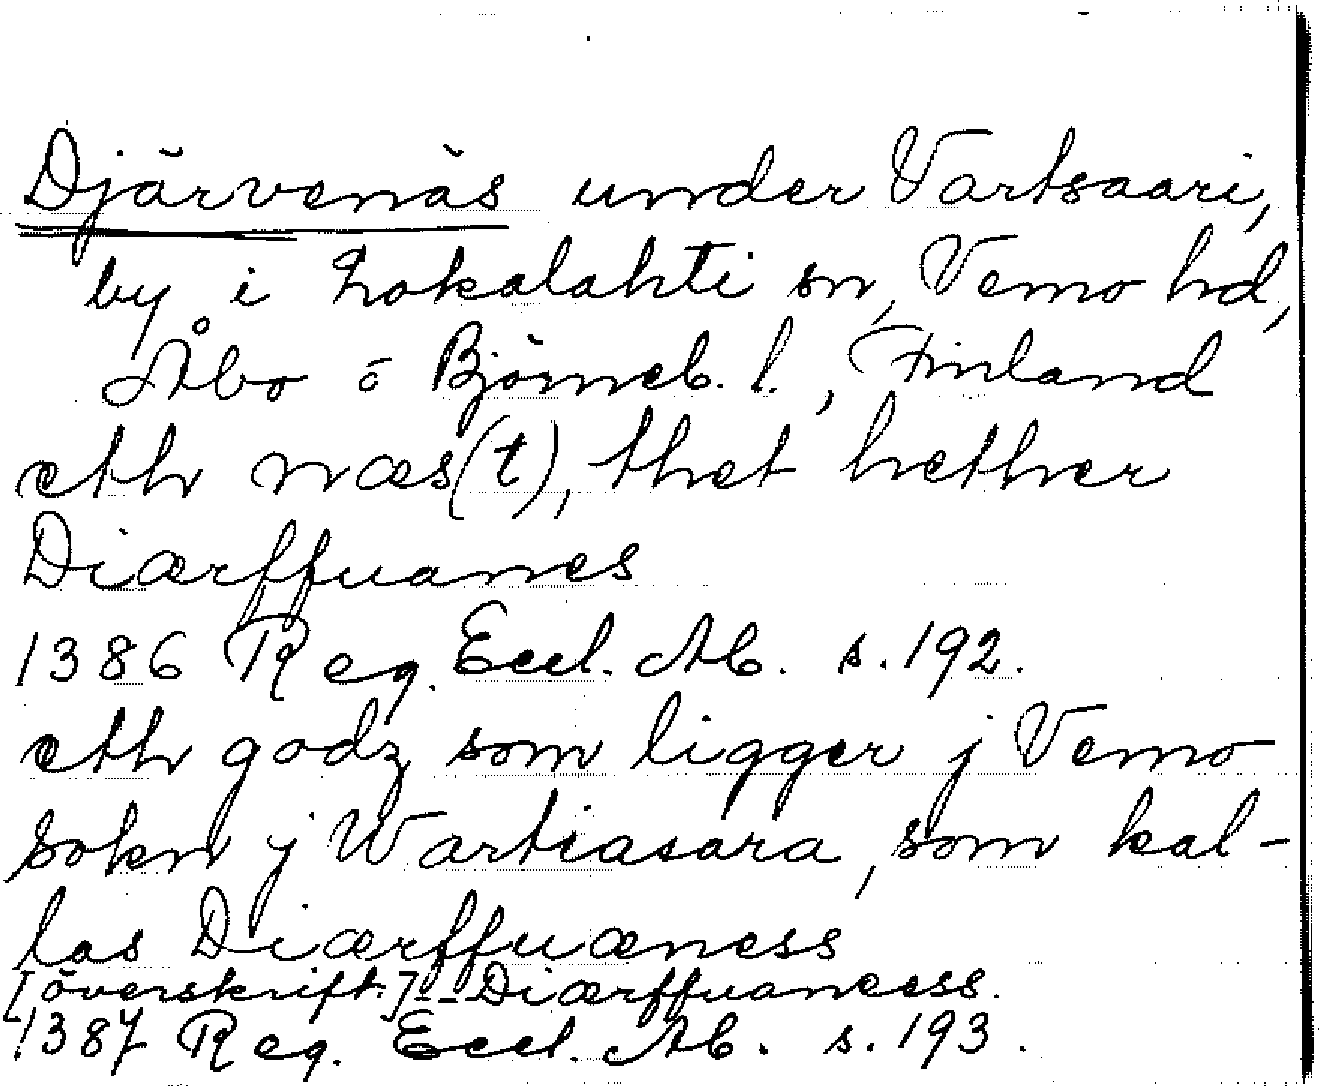 Djärvenäs under Vartsaari,
by i Lokalahti sn, Vemo hd,
Åbo o Björneb. l., Finland
eth næs(t), thet hether
Diærffuanes
1386 Reg. Eccl. Ab. s. 192.
eth godz som ligger j Vemo
sokn j Wartiasara, som kal-
las Diærffuæness
[överskift.] -- Diærffuaneess.
1387 Reg. Eccl. Ab. s. 193.